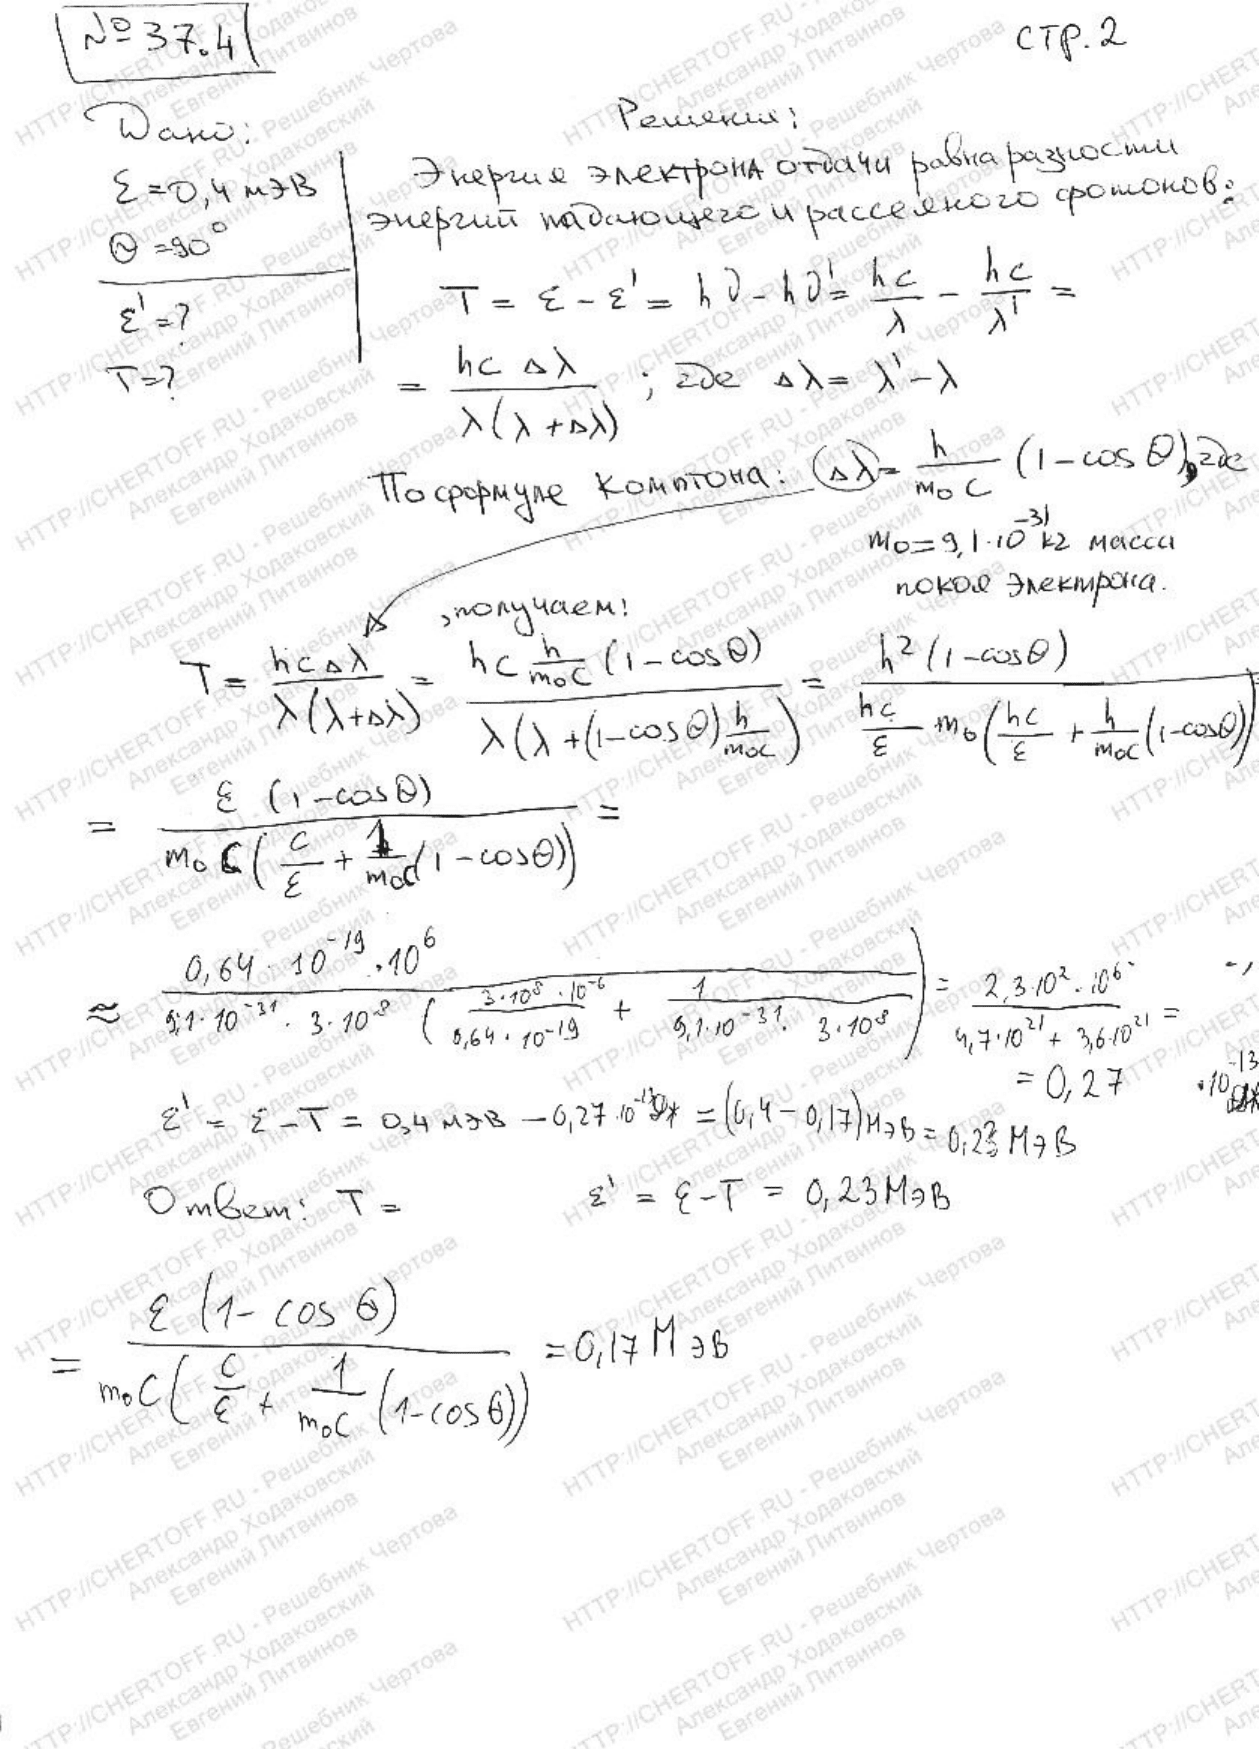 № 37.4
стр. 2
Дано:
ε = 0,4 мэВ
θ = 90°
ε' = ?
T = ?
Решение:
Энергия электрона отдачи равна разности
энергий падающего и рассеяного фотонов:
T = ε - ε' = hν - hν' = hc/λ - hc/λ' =
= hcΔλ / λ(λ + Δλ) ; где Δλ = λ' - λ
По формуле Комптона: Δλ = h/m₀c (1 - cos θ), где
m₀ = 9,1·10⁻³¹ кг масса
покоя электрона.
, получаем:
T = hcΔλ / λ(λ+Δλ) = hc h/m₀c (1 - cosθ) / λ(λ + (1 - cosθ) h/m₀c) = h² (1 - cosθ) / hc/ε m₀ (hc/ε + h/m₀c (1 - cosθ)) =
= ε (1 - cosθ) / m₀c (c/ε + 1/m₀c (1 - cosθ)) =
≈ 0,64·10⁻¹⁹·10⁶ / 9,1·10⁻³¹·3·10⁸ (3·10⁸·10⁻⁶ / 0,64·10⁻¹⁹ + 1 / 9,1·10⁻³¹·3·10⁸) = 2,3·10²·10⁶ / 4,7·10²¹ + 3,6·10²¹ =
= 0,27 ·10⁻¹³ Дж
ε' = ε - T = 0,4 мэВ - 0,27·10⁻¹³ Дж = (0,4 - 0,17) МэВ = 0,23 МэВ
Ответ: T =
ε' = ε - T = 0,23 МэВ
= ε (1 - cos θ) / m₀c (c/ε + 1/m₀c (1 - cos θ)) = 0,17 МэВ
HTTP://CHERTOFF.RU - Решебник Чертова
Александр Ходаковский
Евгений Литвинов